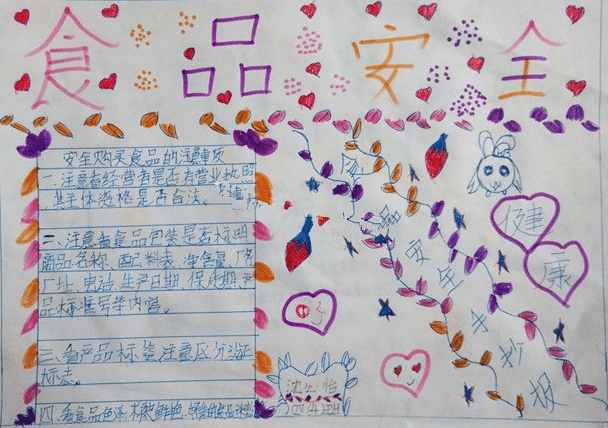 食品安全
安全购买食品的注意事项
一、注意看经营者是否有营业执照
其主体资格是否合法。
二、注意看食品包装是否标明
商品名称、配料表、净含量、厂名
厂址、电话、生产日期、保质期、产
品标准号等内容。
三、看产品标签,注意区分认证
标志。
四、看食品色泽
食品安全手抄报
健
康
沈
怡